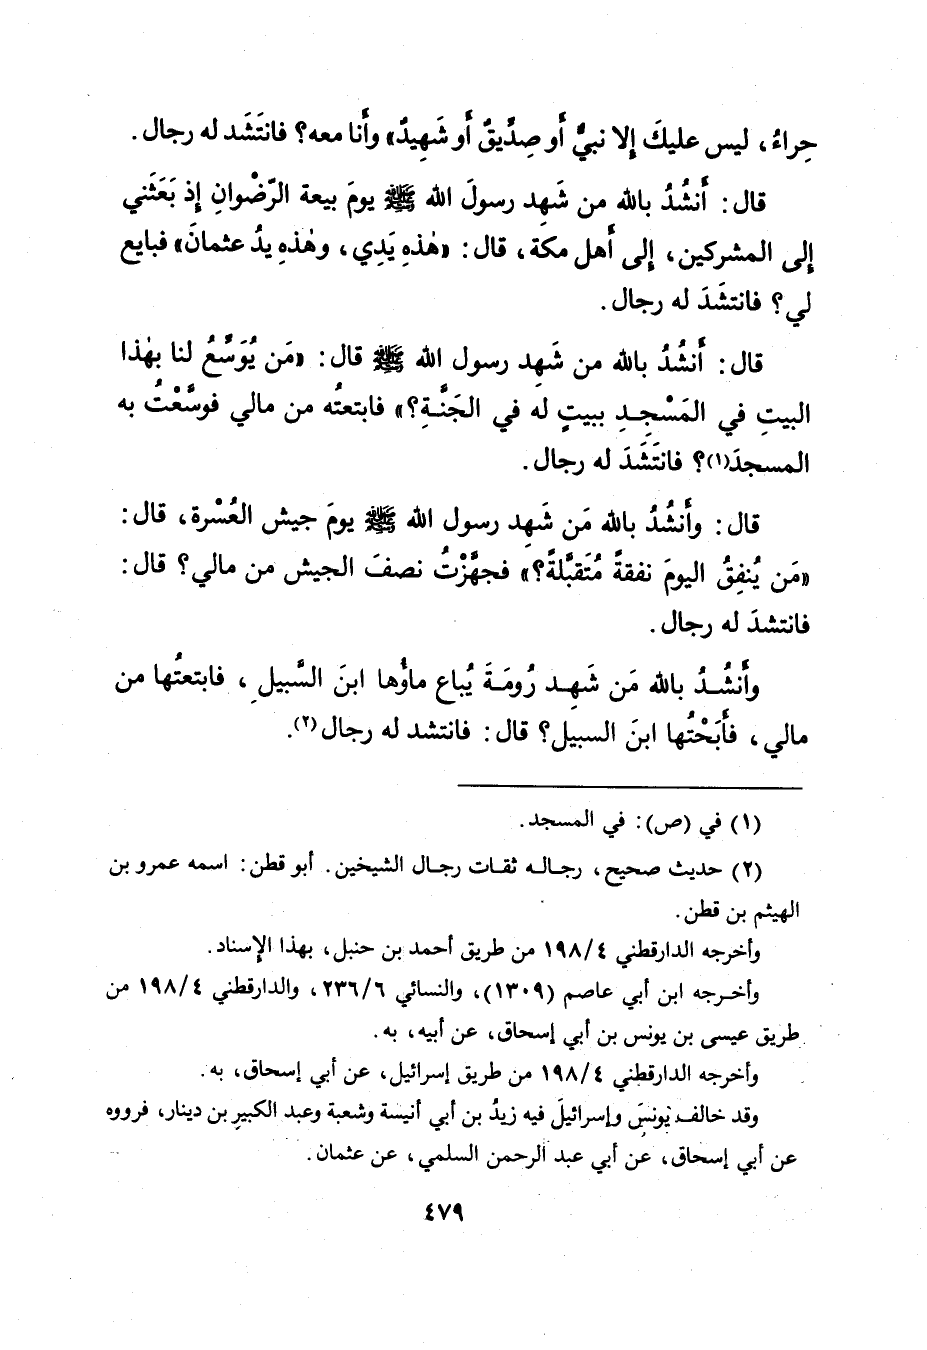 حِراءُ، ليس عليكَ إلا نبيٌّ أَو صِدِّيقٌ أَو شَهِيدٌ» وأَنا معه؟ فانتَشَد له رجال.
قال: أَنشُدُ بالله من شَهِد رسولَ الله ﷺ يومَ بيعة الرِّضْوانِ إذ بَعَثَني
إلى المشركين، إلى أَهل مكة، قال: «هٰذهِ يَدِي، وهٰذهِ يدُ عثمانَ» فبايع
لي؟ فانتشَدَ له رجال.
قال: أَنشُدُ بالله من شَهِد رسول الله ﷺ قال: «مَن يُوَسِّعُ لنا بهٰذا
البيتِ في المَسْجِدِ ببيتٍ له في الجَنَّةِ؟» فابتعتُه من مالي فوسَّعْتُ به
المسجدَ(١)؟ فانتَشَدَ له رجال.
قال: وأَنشُدُ بالله مَن شَهِد رسول الله ﷺ يومَ جيش العُسْرة، قال:
«مَن يُنفِقُ اليومَ نفقةً مُتَقبَّلةً؟» فجهَّزْتُ نصفَ الجيش من مالي؟ قال:
فانتشدَ له رجال.
وأَنشُدُ بالله مَن شَهِد رُومَةَ يُباع ماؤُها ابنَ السَّبيلِ، فابتعتُها من
مالي، فأَبَحْتُها ابنَ السبيل؟ قال: فانتشد له رجال(٢).
(١) في (ص): في المسجد.
(٢) حديث صحيح، رجاله ثقات رجال الشيخين. أبو قطن: اسمه عمرو بن
الهيثم بن قطن.
وأخرجه الدارقطني ١٩٨/٤ من طريق أحمد بن حنبل، بهذا الإسناد.
وأخرجه ابن أبي عاصم (١٣٠٩)، والنسائي ٢٣٦/٦، والدارقطني ١٩٨/٤ من
طريق عيسى بن يونس بن أبي إسحاق، عن أبيه، به.
وأخرجه الدارقطني ١٩٨/٤ من طريق إسرائيل، عن أبي إسحاق، به.
وقد خالف يونسَ وإسرائيلَ فيه زيدُ بن أبي أنيسة وشعبة وعبد الكبير بن دينار، فرووه
عن أبي إسحاق، عن أبي عبد الرحمن السلمي، عن عثمان.
٤٧٩